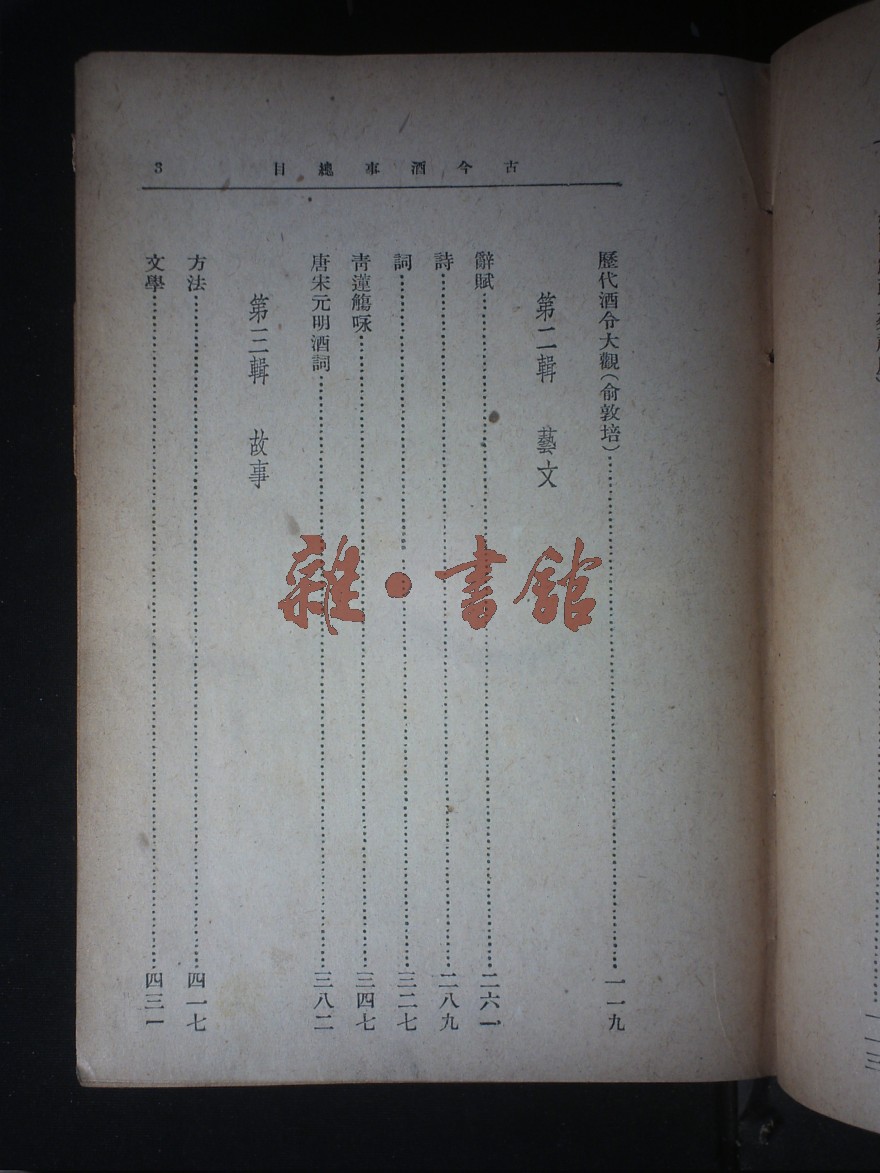 古今酒事總目 3
歷代酒令大觀(俞敦培)……一一九
第二輯 藝文
辭賦……二六一
詩……二八九
詞……三二七
青蓮觴咏……三四七
唐宋元明酒詞……三八二
第三輯 故事
方法……四一七
文學……四三一
雜·書館